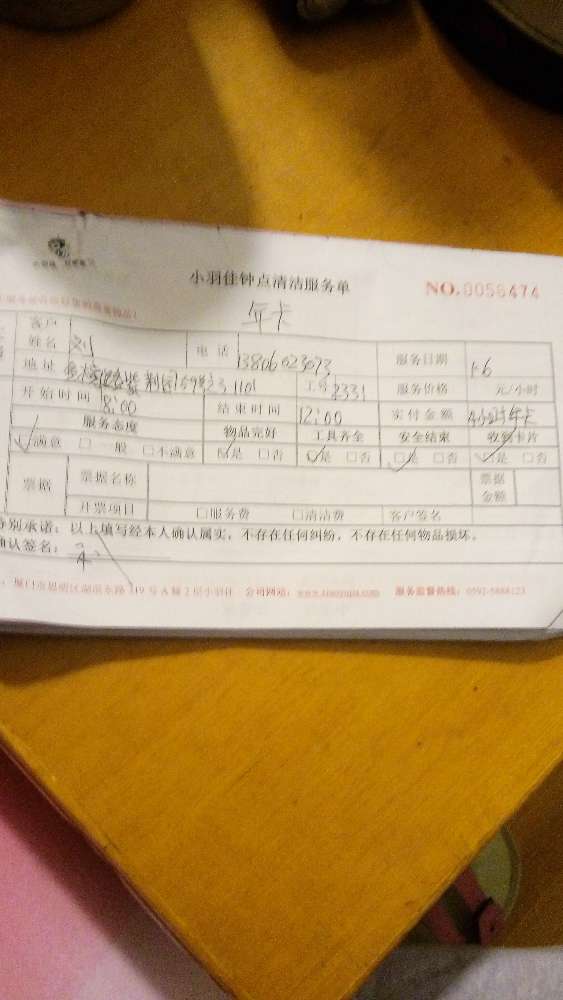 小羽佳钟点清洁服务单
NO.0056474
年卡
客户姓名 刘 电话 13806023073 服务日期 1.6
地址 1101 工号 2331 服务价格 元/小时
开始时间 8:00 结束时间 12:00 实付金额 4小时年卡
服务态度 物品完好 工具齐全 安全结束 收到卡片
☑满意 □一般 □不满意 ☑是 □否 ☑是 □否 ☑是 □否 ☑是 □否
票据 票据名称 票据金额
开票项目 □服务费 □清洁费 客户签名
特别承诺：以上填写经本人确认属实，不存在任何纠纷，不存在任何物品损坏。
确认签名：
厦门市思明区湖滨东路319号A幢2层小羽佳 公司网站： 服务监督热线：0592-5888123